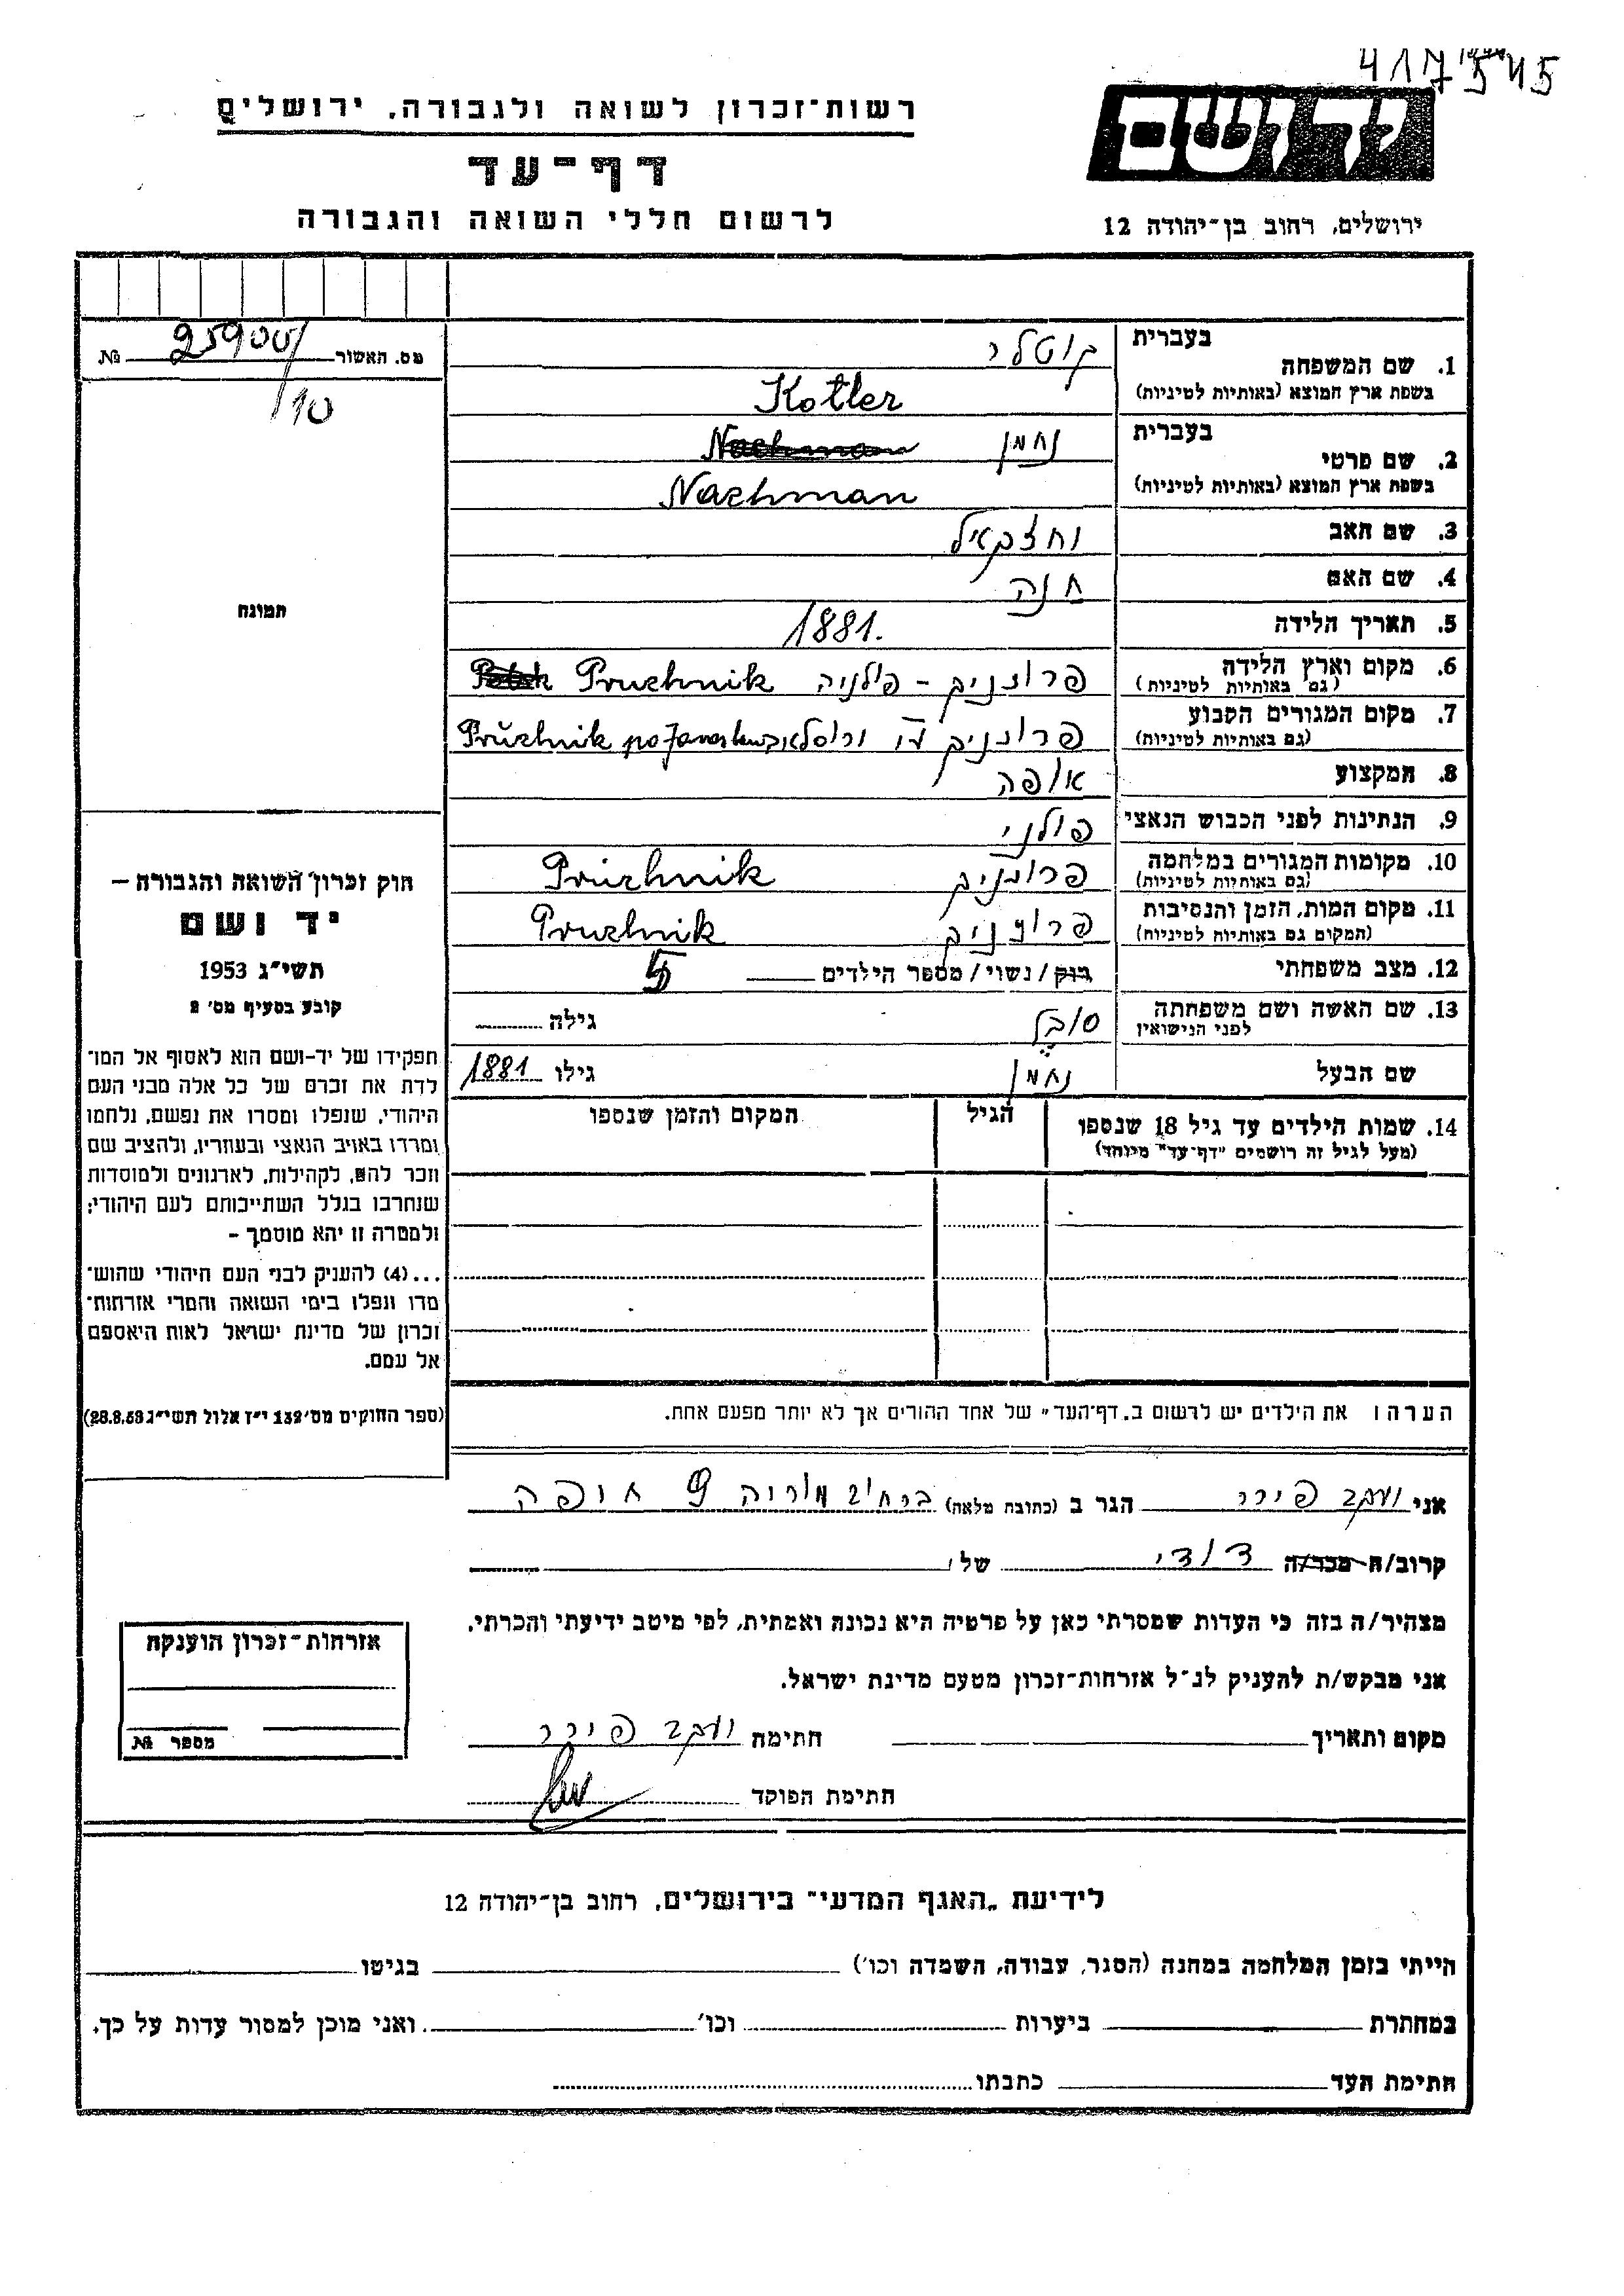 417545
יד ושם
רשות־זכרון לשואה ולגבורה, ירושלים
דף־עד
לרשום חללי השואה והגבורה
ירושלים, רחוב בן־יהודה 12
מס. האשור 25900/10 №
תמונה
בעברית קוטלר
1. שם המשפחה
בשפת ארץ המוצא (באותיות לטיניות) Kotler
בעברית נחמן
2. שם פרטי
בשפת ארץ המוצא (באותיות לטיניות) Nachman
3. שם האב יחזקאל
4. שם האם חנה
5. תאריך הלידה 1881.
6. מקום וארץ הלידה פרוז'ניק - פולניה Pruzhnik
(גם באותיות לטיניות)
7. מקום המגורים הקבוע פרוז'ניק Prużhnik
(גם באותיות לטיניות)
8. המקצוע אופה
9. הנתינות לפני הכבוש הנאצי פולני
10. מקומות המגורים במלחמה פרוז'ניק Pruzhnik
(גם באותיות לטיניות)
11. מקום המות, הזמן והנסיבות פרוז'ניק Pruzhnik
(המקום גם באותיות לטיניות)
12. מצב משפחתי רוק/נשוי/מספר הילדים 5
13. שם האשה ושם משפחתה סובל גילה
לפני הנישואין
שם הבעל נחמן גילו 1881
14. שמות הילדים עד גיל 18 שנספו הגיל המקום והזמן שנספו
(מעל לגיל זה רושמים "דף־עד" מיוחד)
הערה: את הילדים יש לרשום ב„דף־העד" של אחד ההורים אך לא יותר מפעם אחת.
חוק זכרון השואה והגבורה —
יד ושם
תשי"ג 1953
קובע בסעיף מס' 2
תפקידו של יד-ושם הוא לאסוף אל המו־
לדת את זכרם של כל אלה מבני העם
היהודי, שנפלו ומסרו את נפשם, נלחמו
ומרדו באויב הנאצי ובעוזריו, ולהציב שם
וזכר להם, לקהילות, לארגונים ולמוסדות
שנחרבו בגלל השתייכותם לעם היהודי;
ולמטרה זו יהא מוסמך -
...(4) להעניק לבני העם היהודי שהוש־
מדו ונפלו בימי השואה והמרי אזרחות־
זכרון של מדינת ישראל לאות היאספם
אל עמם.
(ספר החוקים מס' 132 י"ז אלול תשי"ג 28.8.53)
אני יעקב פירר הגר ב (כתובת מלאה) ברחוב מוריה 9 חיפה
קרוב/ה מכר/ה דודי של
מצהיר/ה בזה כי העדות שמסרתי כאן על פרטיה היא נכונה ואמתית, לפי מיטב ידיעתי והכרתי.
אני מבקש/ת להעניק לנ"ל אזרחות־זכרון מטעם מדינת ישראל.
מקום ותאריך חתימה יעקב פירר
חתימת הפוקד
אזרחות־זכרון הוענקה
מספר №
לידיעת „האגף המדעי" בירושלים, רחוב בן־יהודה 12
הייתי בזמן המלחמה במחנה (הסגר, עבודה, השמדה וכו') בגיטו
במחתרת ביערות וכו' ואני מוכן למסור עדות על כך.
חתימת העד כתבתו